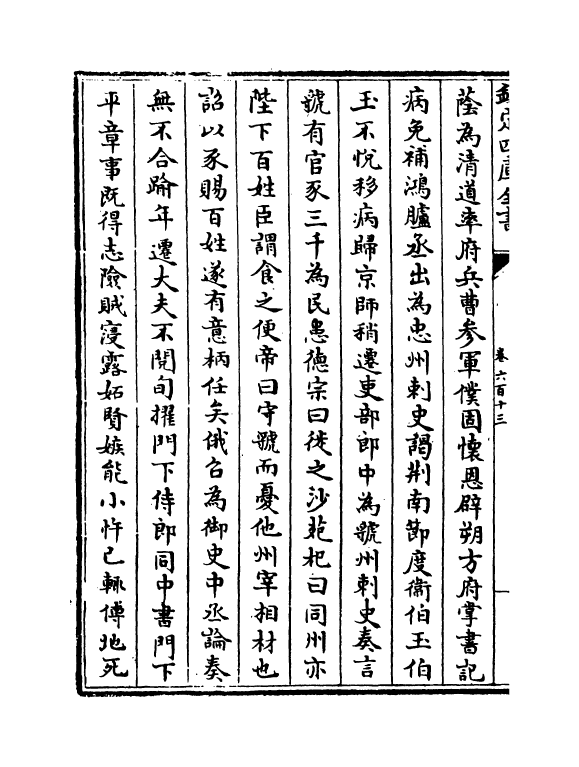 欽定四庫全書
卷六百十三
蔭為清道率府兵曹参軍僕固懷恩辟朔方府掌書記
病免補鴻臚丞出為忠州刺史謁荆南節度衞伯玉伯
玉不悦移病歸京師稍遷吏部郎中為虢州刺史奏言
虢有官豕三千為民患德宗曰徙之沙苑杞曰同州亦
陛下百姓臣謂食之便帝曰守虢而憂他州宰相材也
詔以豕賜百姓遂有意柄任矣俄召為御史中丞論奏
無不合踰年遷大夫不閱旬擢門下侍郎同中書門下
平章事既得志險賊寖露妬賢嫉能小忤己輒傅地死